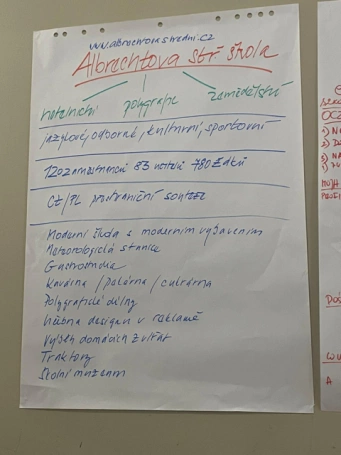 www.albrechtovastredni.cz
Albrechtova stř. škola
hotelnictví polygrafie zemědělství
jazykové, odborné, kulturní, sportovní
120 zaměstnanců 83 učitelů 780 žáků
CZ/PL přeshraniční soutěž
Moderní škola s moderním vybavením
Meteorologická stanice
Gastrostudio
Kavárna / pekárna / cukrárna
Polygrafické dílny
Učebna design v reklamě
Výběh domácích zvířat
Traktory
Školní muzeum